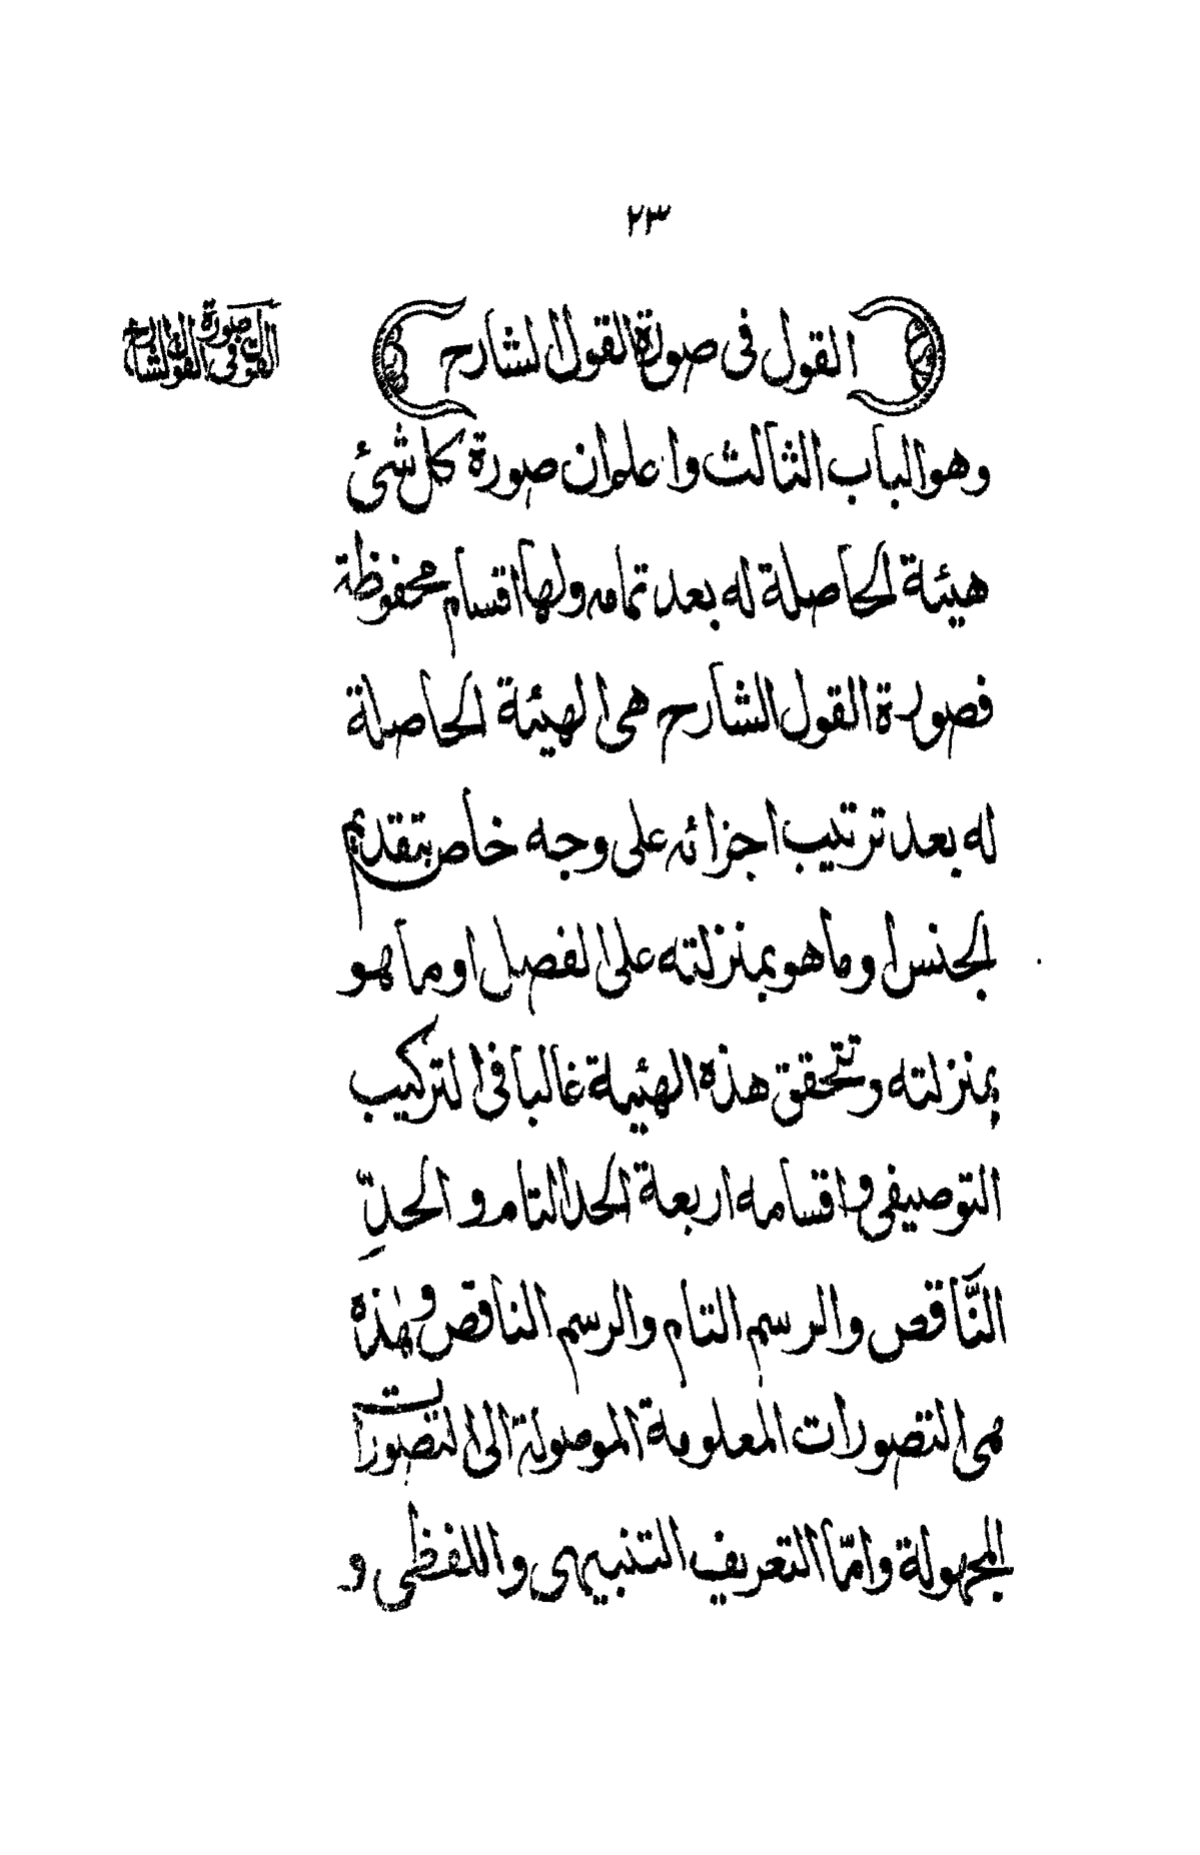 ٢٣
القول فى صورة القول الشارح
القول فى صورة القول الشارح
وهو الباب الثالث واعلم ان صورة كل شئ
هيئة الحاصلة له بعد تمامه ولها اقسام محفوظة
فصورة القول الشارح هى الهيئة الحاصلة
له بعد ترتيب اجزائه على وجه خاص بتقديم
الجنس او ما هو بمنزلته على الفصل او ما هو
بمنزلته وتتحقق هذه الهيئة غالبا فى التركيب
التوصيفى واقسامه اربعة الحد التام والحدِّ
النَّاقص والرسم التام والرسم الناقص وهٰذه
هى التصورات المعلومة الموصولة الى التصورات
المجهولة وامّا التعريف التنبيهى واللفظى و